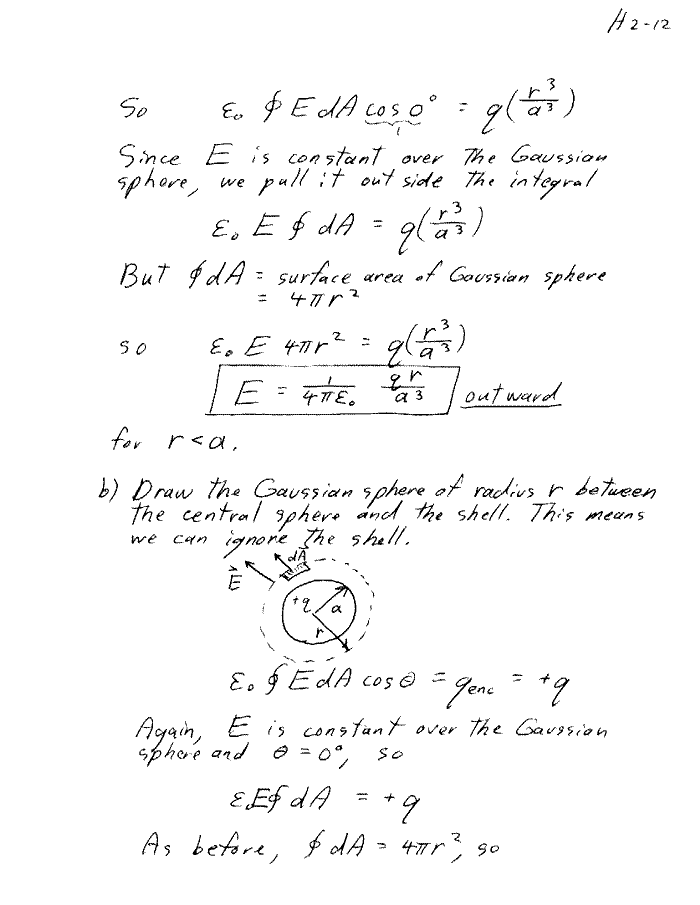 H2-12
So ε₀ ∮ E dA cos 0° = q(r³/a³)
1
Since E is constant over the Gaussian
sphere, we pull it outside the integral
ε₀ E ∮ dA = q(r³/a³)
But ∮ dA = surface area of Gaussian sphere
= 4πr²
so ε₀ E 4πr² = q(r³/a³)
E = 1/4πε₀ qr/a³ outward
for r < a.
b) Draw the Gaussian sphere of radius r between
the central sphere and the shell. This means
we can ignore the shell.
dA⃗
E⃗
+q a
r
ε₀ ∮ E dA cos θ = qenc = +q
Again, E is constant over the Gaussian
sphere and θ = 0°, so
εE∮ dA = +q
As before, ∮ dA = 4πr², so